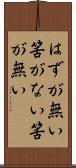 はずが無い
筈がない筈
が無い